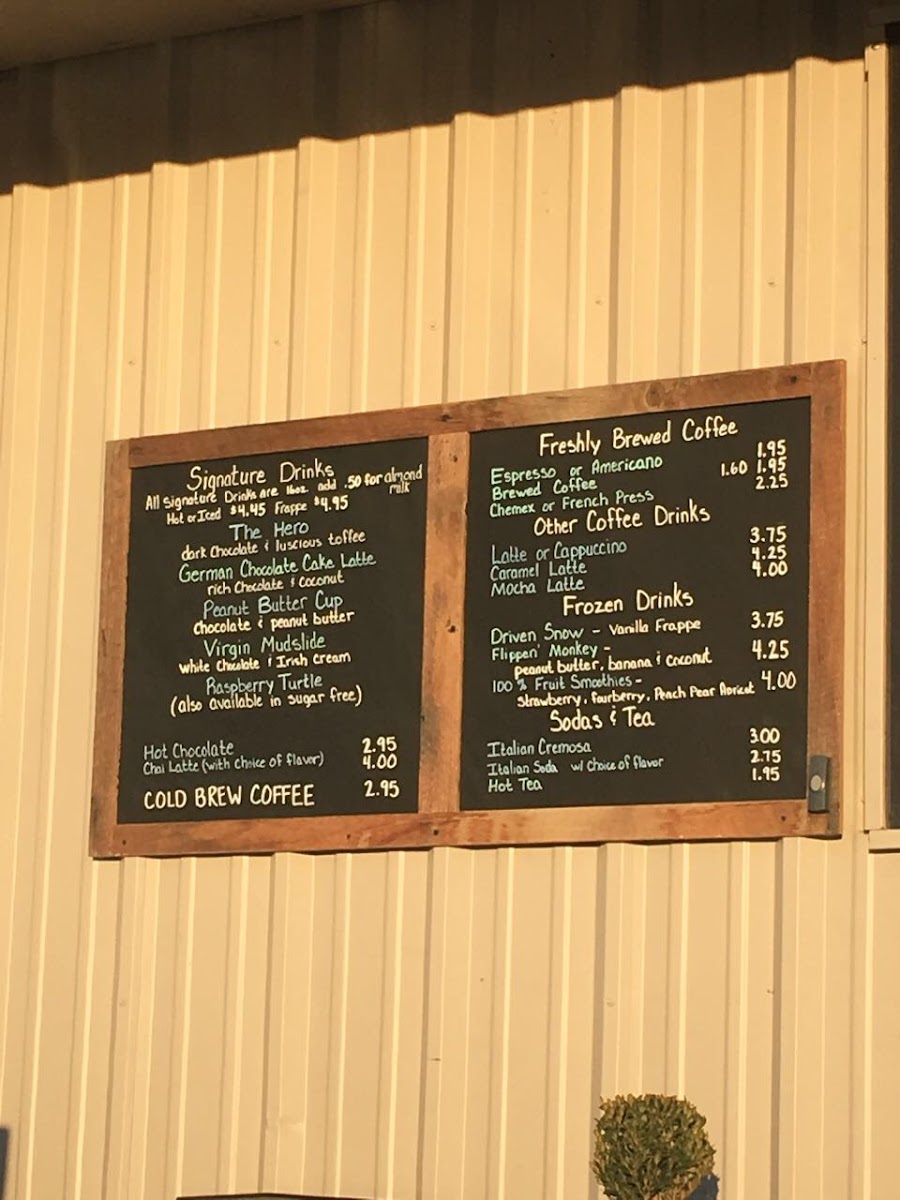 Signature Drinks
All Signature Drinks are 16oz. add .50 for almond milk
Hot or Iced $4.45 Frappe $4.95
The Hero
dark Chocolate & luscious toffee
German Chocolate Cake Latte
rich Chocolate & Coconut
Peanut Butter Cup
Chocolate & peanut butter
Virgin Mudslide
White Chocolate & Irish Cream
Raspberry Turtle
(also available in sugar free)
Hot Chocolate 2.95
Chai Latte (with choice of flavor) 4.00
COLD BREW COFFEE 2.95
Freshly Brewed Coffee
Espresso or Americano 1.95
Brewed Coffee 1.60 1.95
Chemex or French Press 2.25
Other Coffee Drinks
Latte or Cappuccino 3.75
Caramel Latte 4.25
Mocha Latte 4.00
Frozen Drinks
Driven Snow - Vanilla Frappe 3.75
Flippen' Monkey -
peanut butter, banana & coconut 4.25
100% Fruit Smoothies -
Strawberry, Fourberry, Peach Pear Apricot 4.00
Sodas & Tea
Italian Cremosa 3.00
Italian Soda w/ Choice of flavor 2.75
Hot Tea 1.95